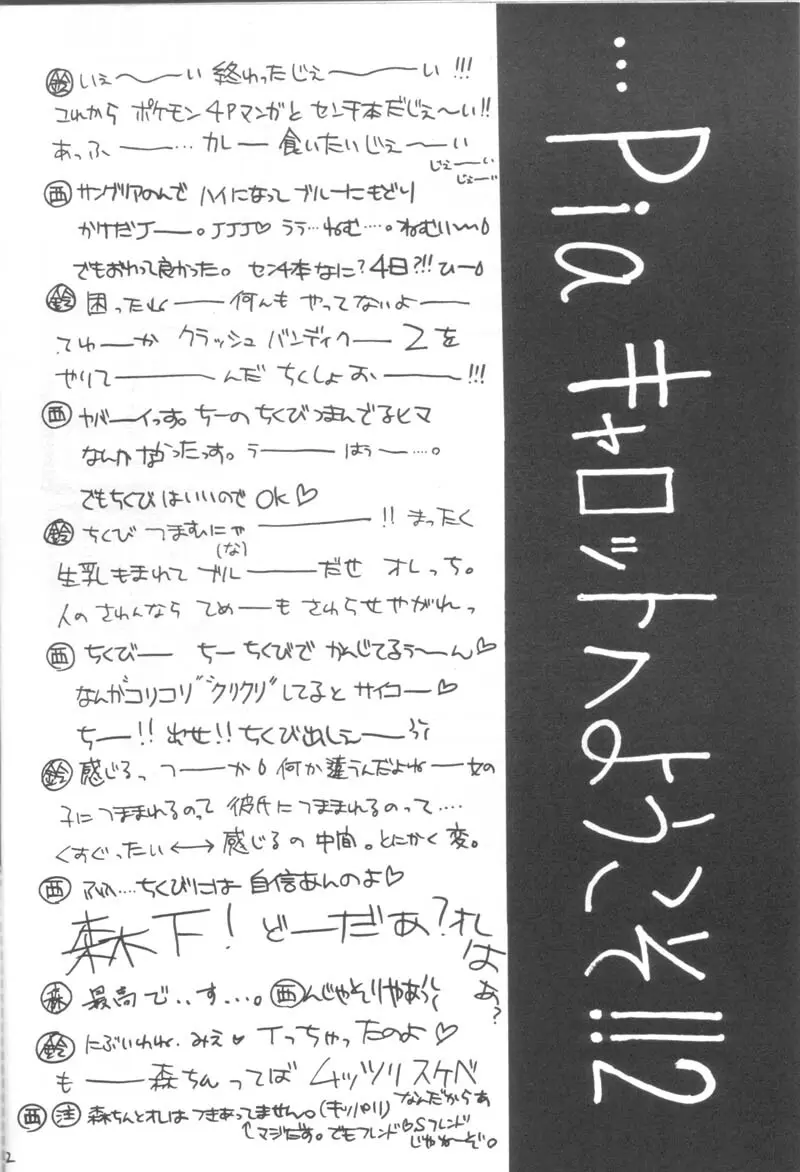 …Pia キャロットへようこそ!!2
鈴 いぇ〜〜い 終わったじぇ〜〜〜い!!!
これから ポケモン4Pマンガと センチ本だじぇ〜い!!
あっふ ――… カレー 食いたいじぇ〜〜い
じぇ〜〜い
じぇ〜〜い
西 サングリアのんで ハイになって ブルーにもどり
かけだJ――。JJJ♡ ララ…ねむ…。ねむい〜〜
でもおわって良かった。センチ本なに?4日?!! ひー
鈴 困ったね――何んも やってないよ――
てゆーか クラッシュ バンディクー 2を
やりて――――んだ ちくしょお――!!!
西 ヤバーイっす。ちーの ちくびつまんでるヒマ
なんかなかったっす。う―― はぅ――…。
でもちくびはいいので OK♡
鈴 ちくび つまむにゃ ――――!! まったく
(な)
生乳もまれて ブル――だぜ オレっち。
人の さわんなら てめーも さわらせやがれっ
西 ちくび―― ちー ちくびで かんじてるぅ〜〜ん♡
なんかコリコリ クリクリしてると サイコー♡
ちー!! 出せ!! ちくび出しぇ――
鈴 感じるっ つ――か 何か違うんだよね――女の
子につままれるのって 彼氏につままれるのって‥‥
くすぐったい ←→ 感じるの 中間。とにかく 変。
西 ふふ…ちくびには 自信あんのよ♡
森木下! どーだぁ?オレ
はぁ?
森 最高で‥す…。西んじゃそりゃあぅ
鈴 にぶいわね、みえ♥ イっちゃったのよ♡
も――森ちんってば ムッツリ スケベ
なんだからぁ
西 注 森ちんとオレは つきあってません。(キッパリ)
↑マジだす。でもフレンド♡Sフレンド
じゃねーぞ。
2